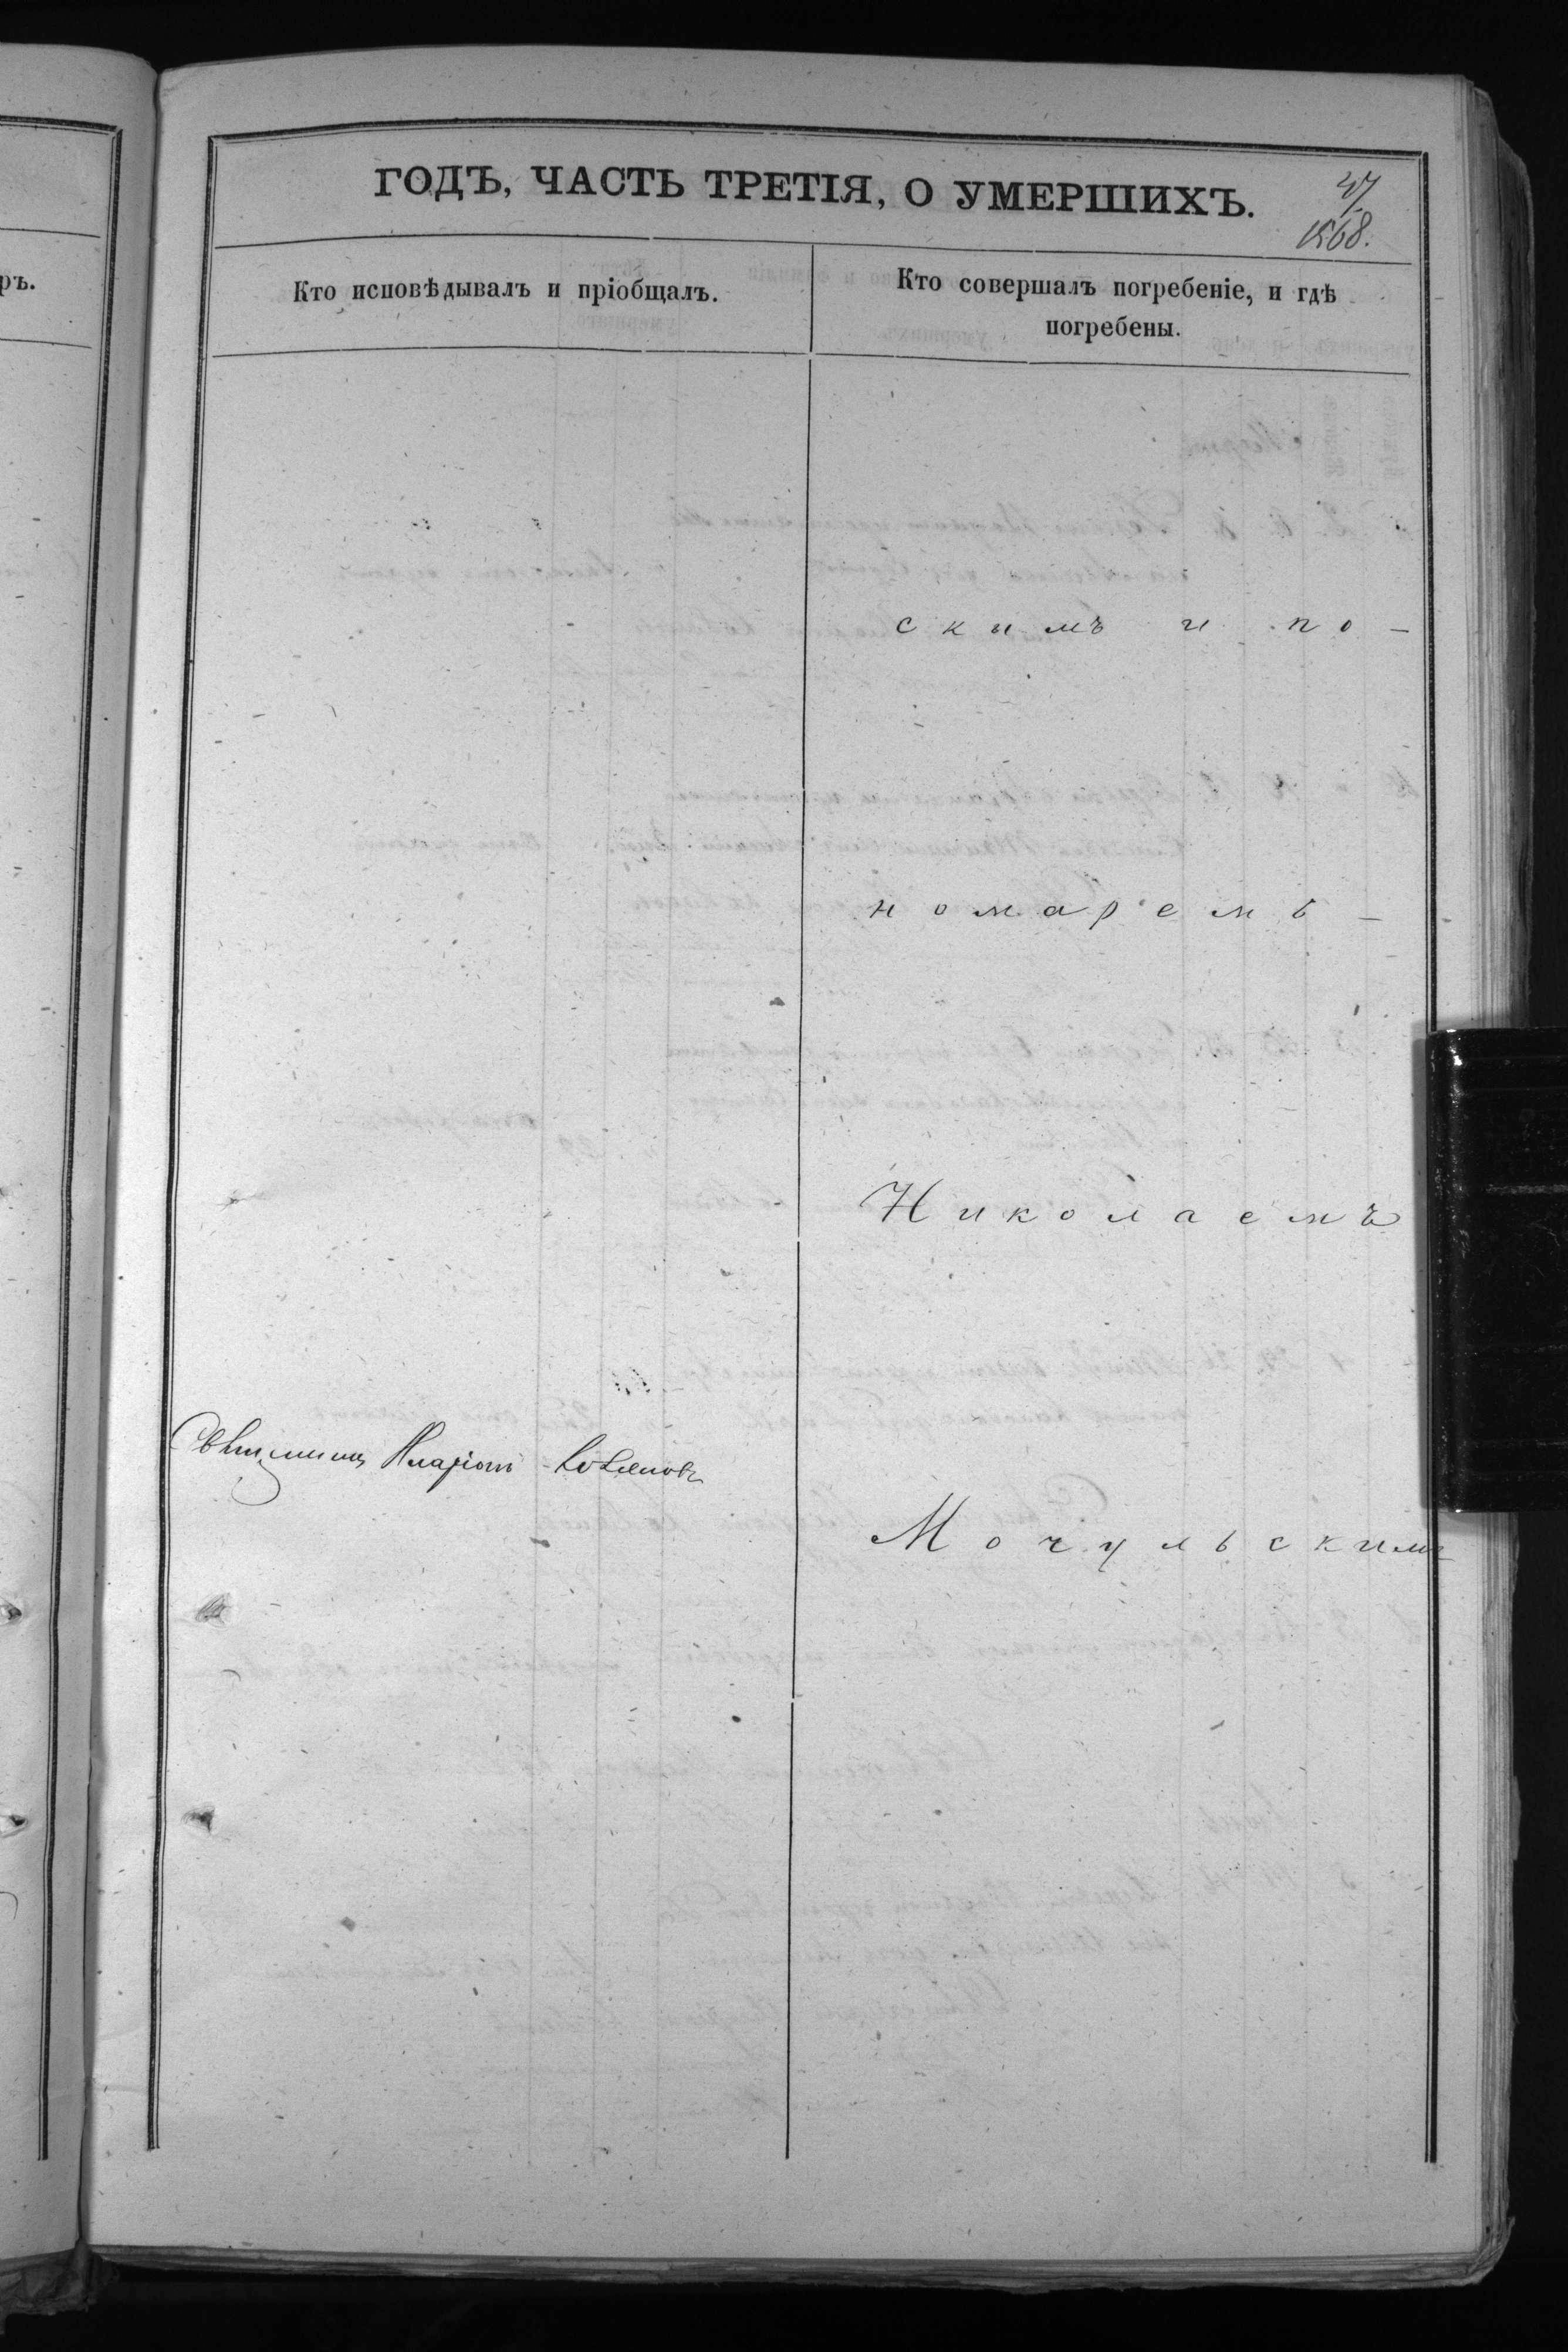 ГОДЪ, ЧАСТЬ ТРЕТІЯ, О УМЕРШИХЪ.
47
1568.
ръ.
Кто исповѣдывалъ и пріобщалъ.
Кто совершалъ погребеніе, и гдѣ
погребены.
скимъ и по-
номаремъ -
Николаемъ
Священникъ Иларіонъ
Мочульскимъ